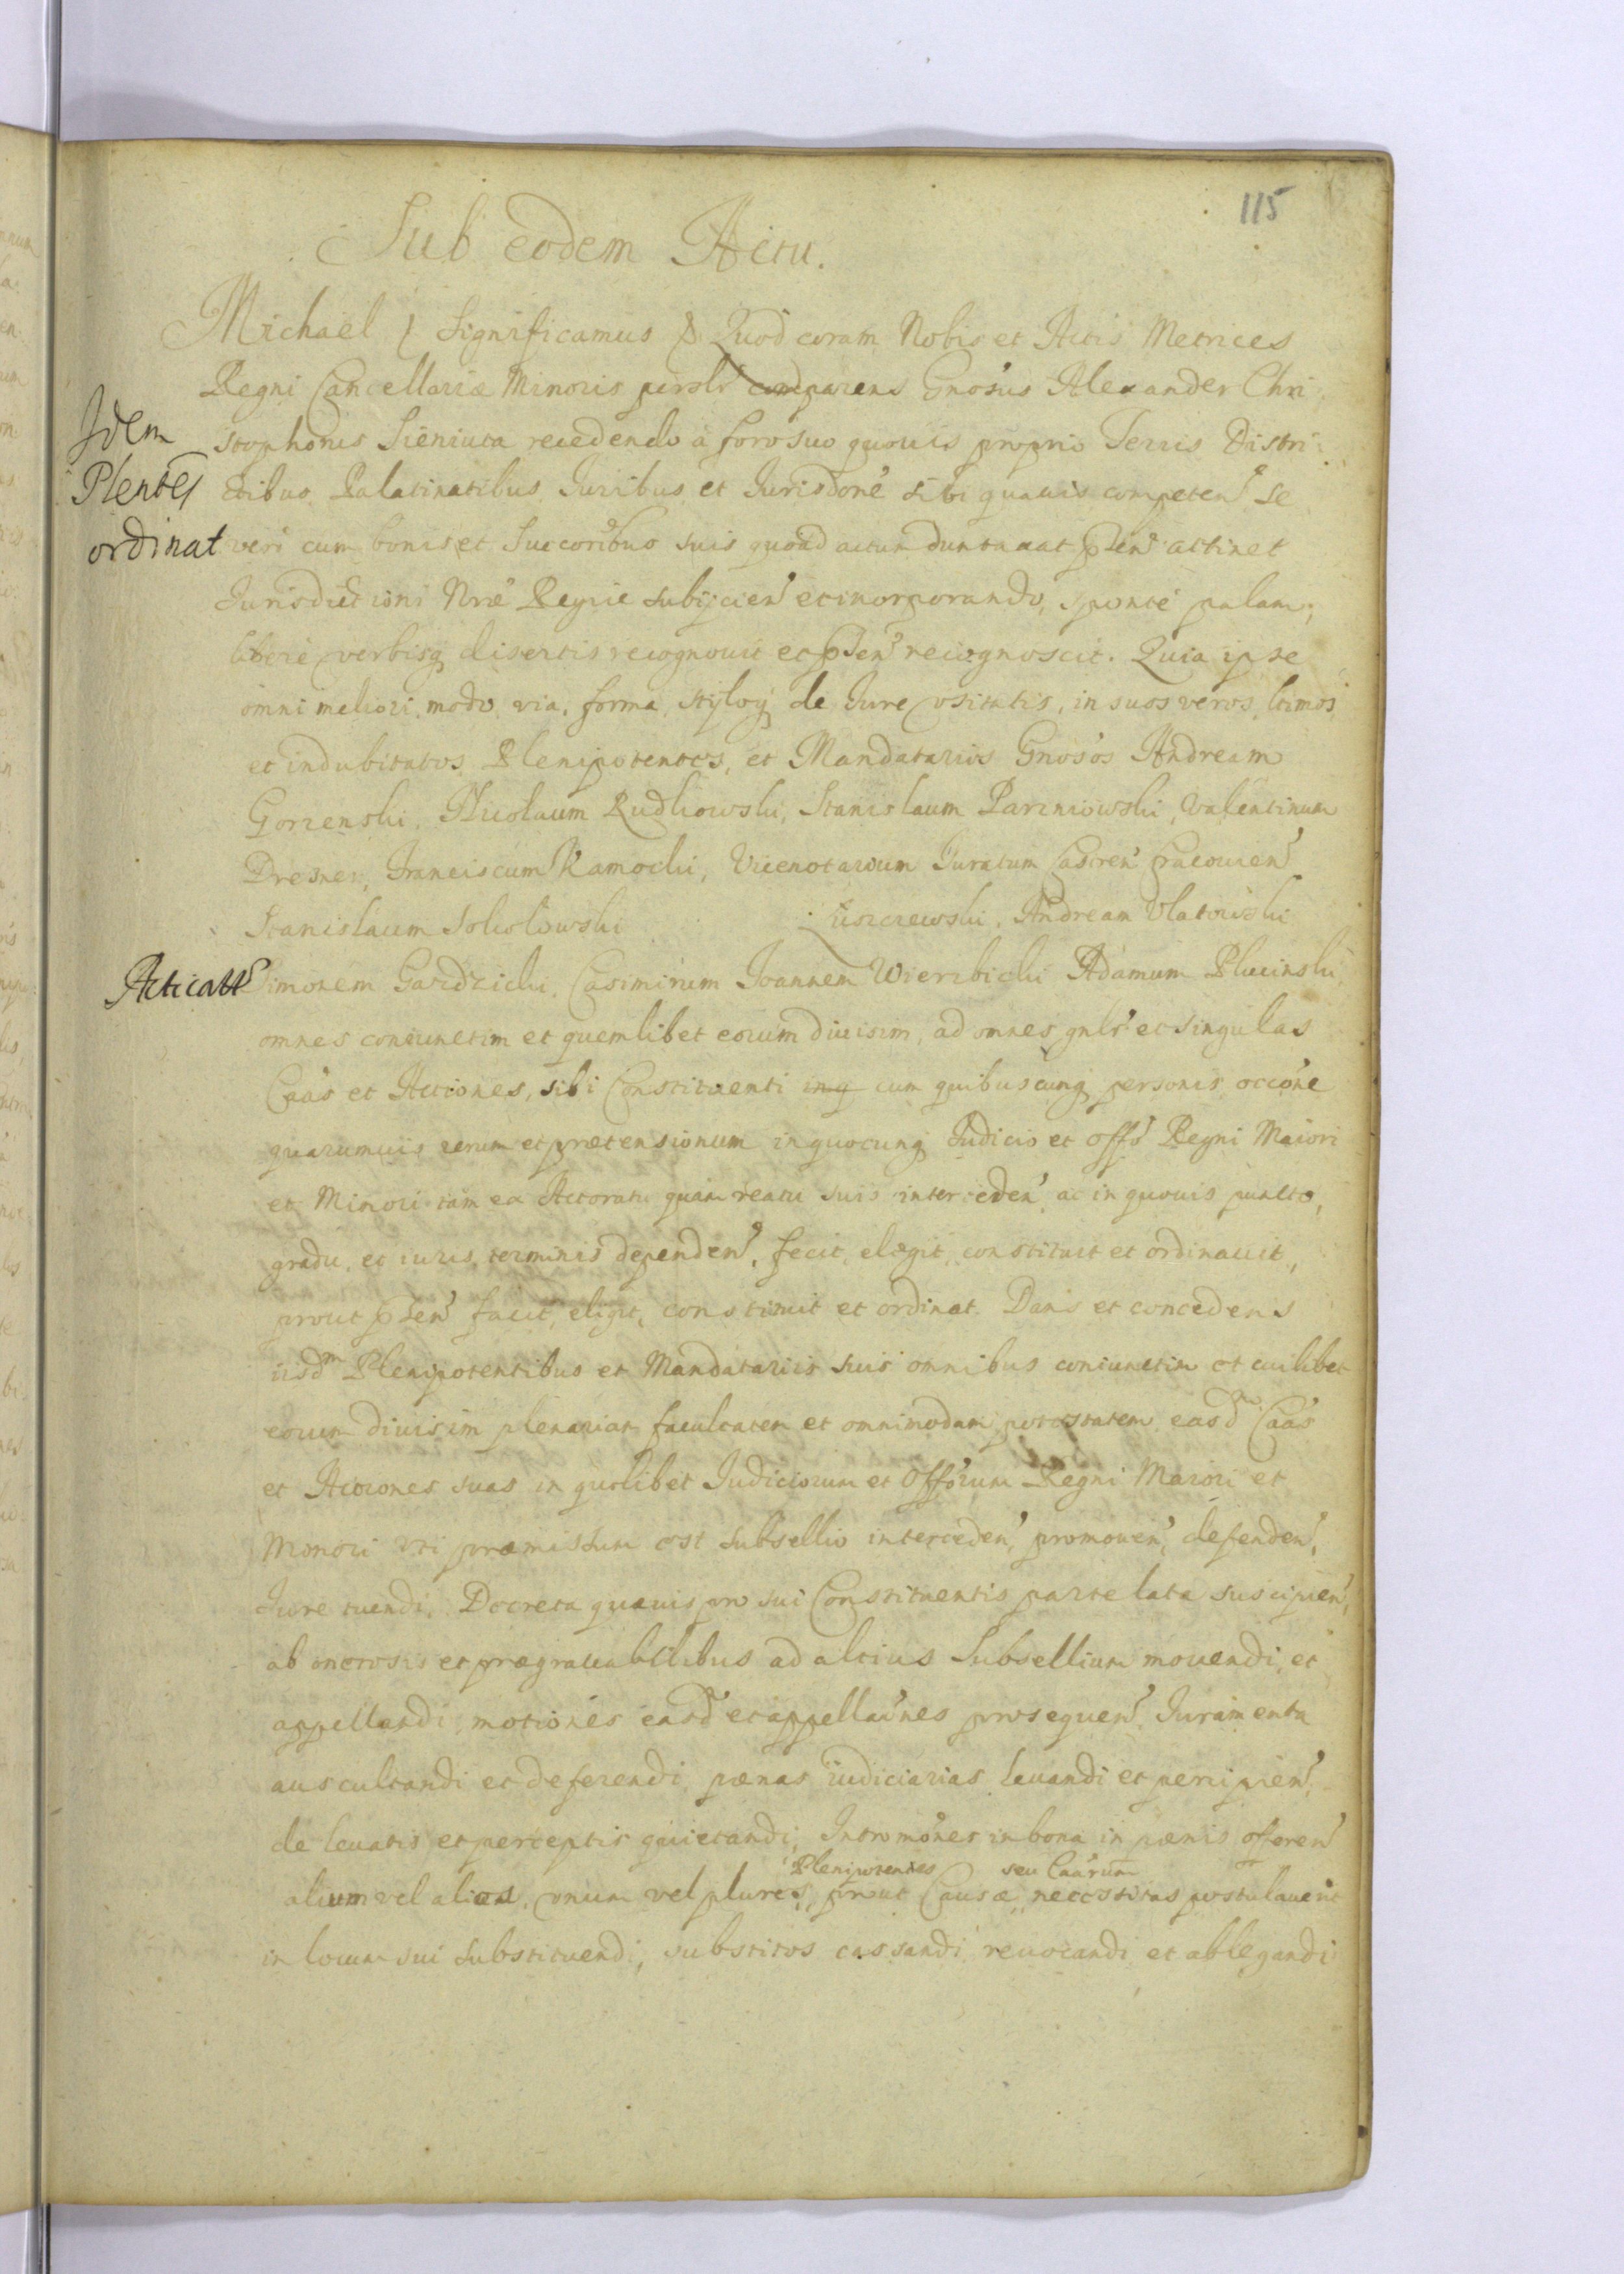 115
Sub eodem Actu.
Michael & Significamus & Quod coram Nobis et Actis Metrices
Regni Cancellariæ Minoris persolr comparens Gnosus Alexander Chri
stophorus Sieniuta recedendo a foro suo quouis proprio Terris Distri
Idem
Plentes
ordinat
ctibus Palatinatibus Juribus et Jurisdone sibi quauis competen se
vero cum bonis et Succoribus suis quoad actum duntaxat pnten attinet
Jurisdictioni Nræ Regiæ subijcien et incorporando, sponte palam,
libere verbisq disertis recognouit et pnten recognoscit. Quia ipse
omni meliori modo via, forma, styloq de Jure vsitatis, in suos veros, ltimos
et indubitatos Plenipotentes, et Mandatarios Gnosos Andream
Gorzenski, Nicolaum Rudkowski, Stanislaum Parzniowski, Valentinum
Dresner, Franciscum Kamocki, Vicenotarium Juratum Castren Cracouien
Stanislaum Sokolowski Kuszczewski, Andream Vlatowski
Acticatt
Simonem Gardzicki, Casimirum Joannem Wierzbicki Adamum Plucinski
omnes coniunctim et quemlibet eorum diuisim, ad omnes gnlr et singulas
Caas et Actiones, sibi Constituenti inq cum quibuscunq personis occone
quarumuis rerum et prætensionum in quocunq Judicio et Offo Regni Maiori
et Minori tam ex Actoratu quam reatu suis interceden ac in quouis puncto,
gradu, et iuris terminis dependen, fecit, elegit, constituit et ordinauit,
prout pnten facit, eligit, constituit et ordinat. Dans et concedens
iisdm Plenipotentibus et Mandatariis suis omnibus coniunctim et cuilibet
eorum diuisim plenariam facultatem et omnimodam potestatem easdm Caas
et Actiones suas in quolibet Judiciorum et Offorum Regni Maiori et
Monori vti præmissum est subsellio interceden, promouen, defenden,
Jure tuendi, Decreta quæuis pro sui Constituentis parte lata suscipien,
ab onerosis et prægrauabilibus ad altius Subsellium mouendi, et
appellandi, motiones easd et appellaones prosequen Juramenta
auscultandi et deferendi, pænas iudiciarias leuandi et percipien,
de leuatis et perceptis quietandi, Intromones in bona in pænis offeren
Plenipotentes seu Caarum
alium vel alios, vnum vel plures, prout Causæ necessitas postulauerit
in locum sui substituendi, substitos cassandi reuocandi et ablegandi